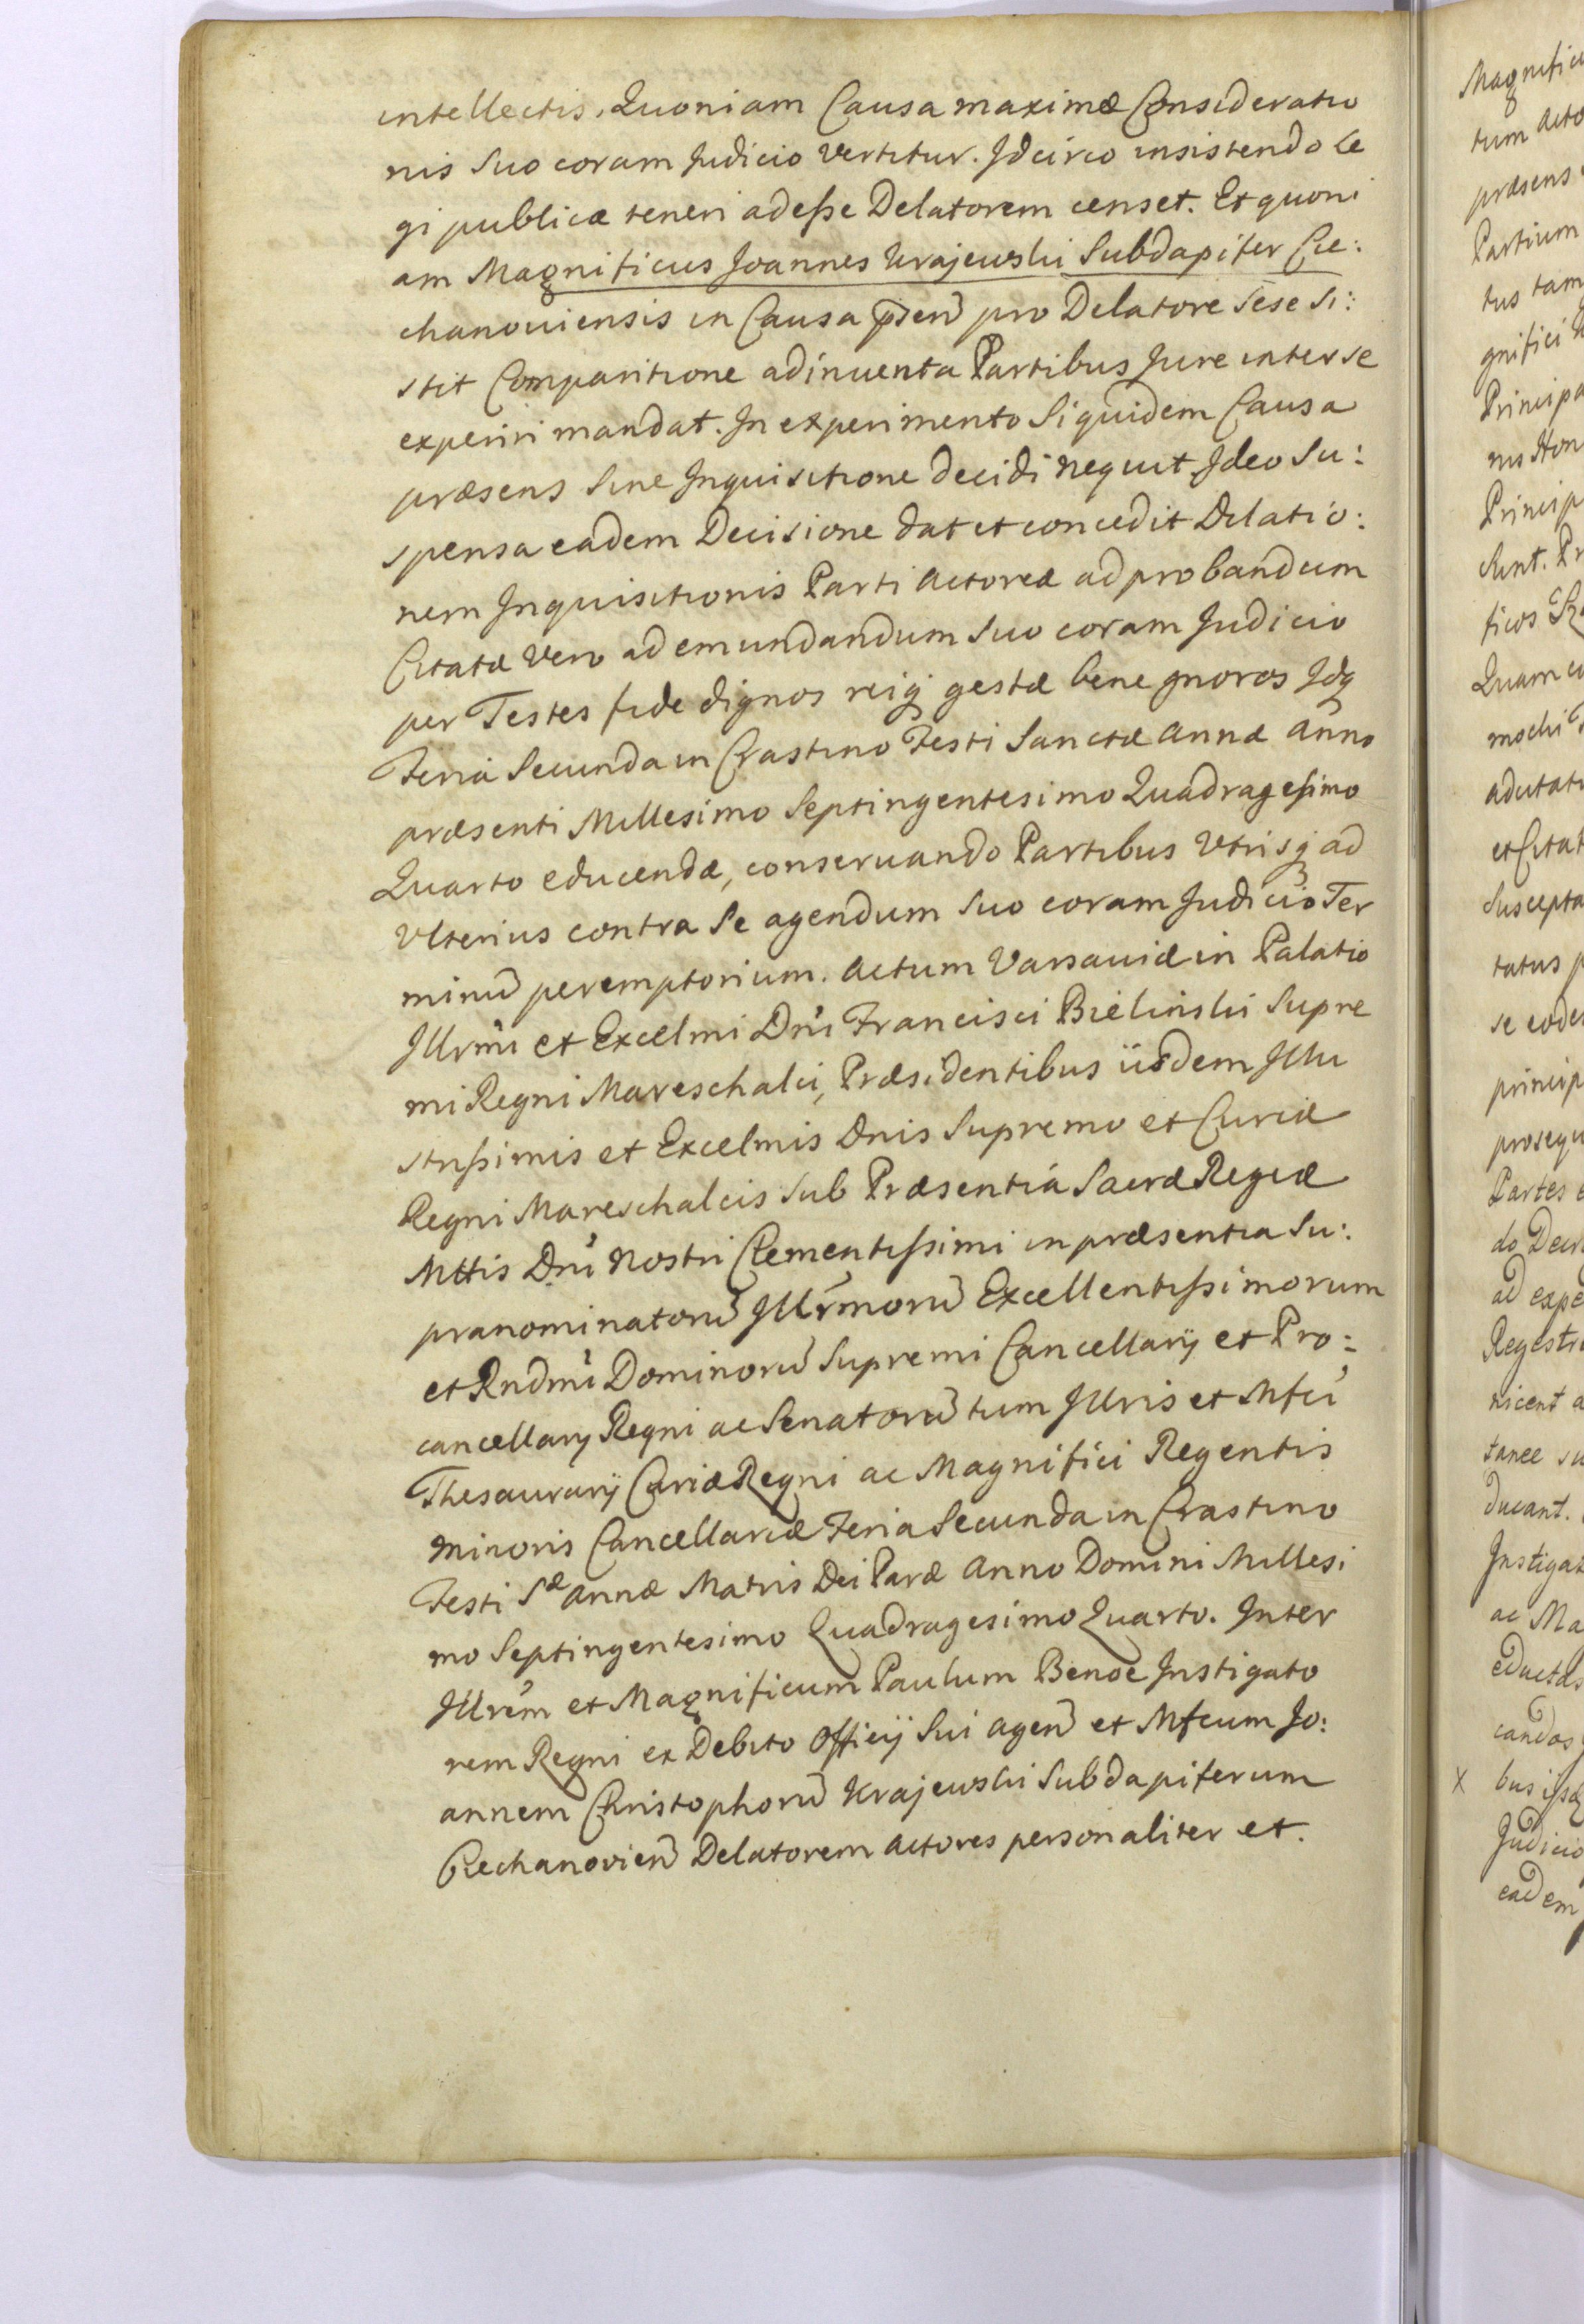 intellectis. Quoniam Causa maximæ Consideratio
nis Suo coram Judicio vertitur. Idcirco insistendo le
gi publicæ teneri adeſse Delatorem censet. Et quoni
am Magnificus Joannes Krajewski Subdapifer Cie:
chanoviensis in Causa p̄sen̄ pro Delatore Sese Si:
stit Comparitione adinventa Partibus Jure inter se
experiri mandat. In experimento Siquidem Causa
præsens Sine Inquisitione decidi nequit Ideo Su:
spensa eadem Decisione dat et concedit Dilatio:
nem Inquisitionis Parti Actoreæ ad probandum
Citatæ vero ad emundandum Suo coram Judicio
per Testes fide dignos reiq gestæ bene gnoros Idq
Feria Secunda in Crastino Festi Sanctæ Annæ Anno
præsenti Millesimo Septingentesimo Quadrageſimo
Quarto educendæ, conservando Partibus Utrisq ad
Ulterius contra Se agendum Suo coram Judicio Ter
minū peremptorium. Actum Varsaviæ in Palatio
Illrmi et Excelmi Dni Francisci Bielinski Supre
mi Regni Mareschalci, Præsidentibus iisdem Illu
striſsimis et Excelmis Dnis Supremo et Curiæ
Regni Mareschalcis Sub Præsentia Sacræ Regiæ
Mttis Dni Nostri Clementiſsimi in præsentia Su:
pranominatorū Illrmorū Excellentiſsimorum
et Rndmi Dominorū Supremi Cancellarij et Pro:
cancellarij Regni ac Senatorū tum Illris et Mfci
Thesaurarij Curiæ Regni ac Magnifici Regentis
Minoris Cancellariæ Feria Secunda in Crastino
Festi Sæ Annæ Matris Dei Paræ Anno Domini Millesi
mo Septingentesimo Quadragesimo Quarto. Inter
Illrem et Magnificum Paulum Benoe Instigato
rem Regni ex Debito Officij Sui agen̄ et Mfcum Jo:
annem Christophorū Krajewski Subdapiferum
Ciechanovien̄ Delatorem Actores personaliter et.
Magnific
tum Acto
præsens
Partium
tus tam
gnifici
Principa
Princip
Sunt. Pr
ficos
Quam
et Citat
Suscepta
tatus p
princip
prosequ
Partes
ad expe
Regestr
nicent a
tanee su
ducant.
Instigat
ac Ma
candas
X
Judicio
eadem